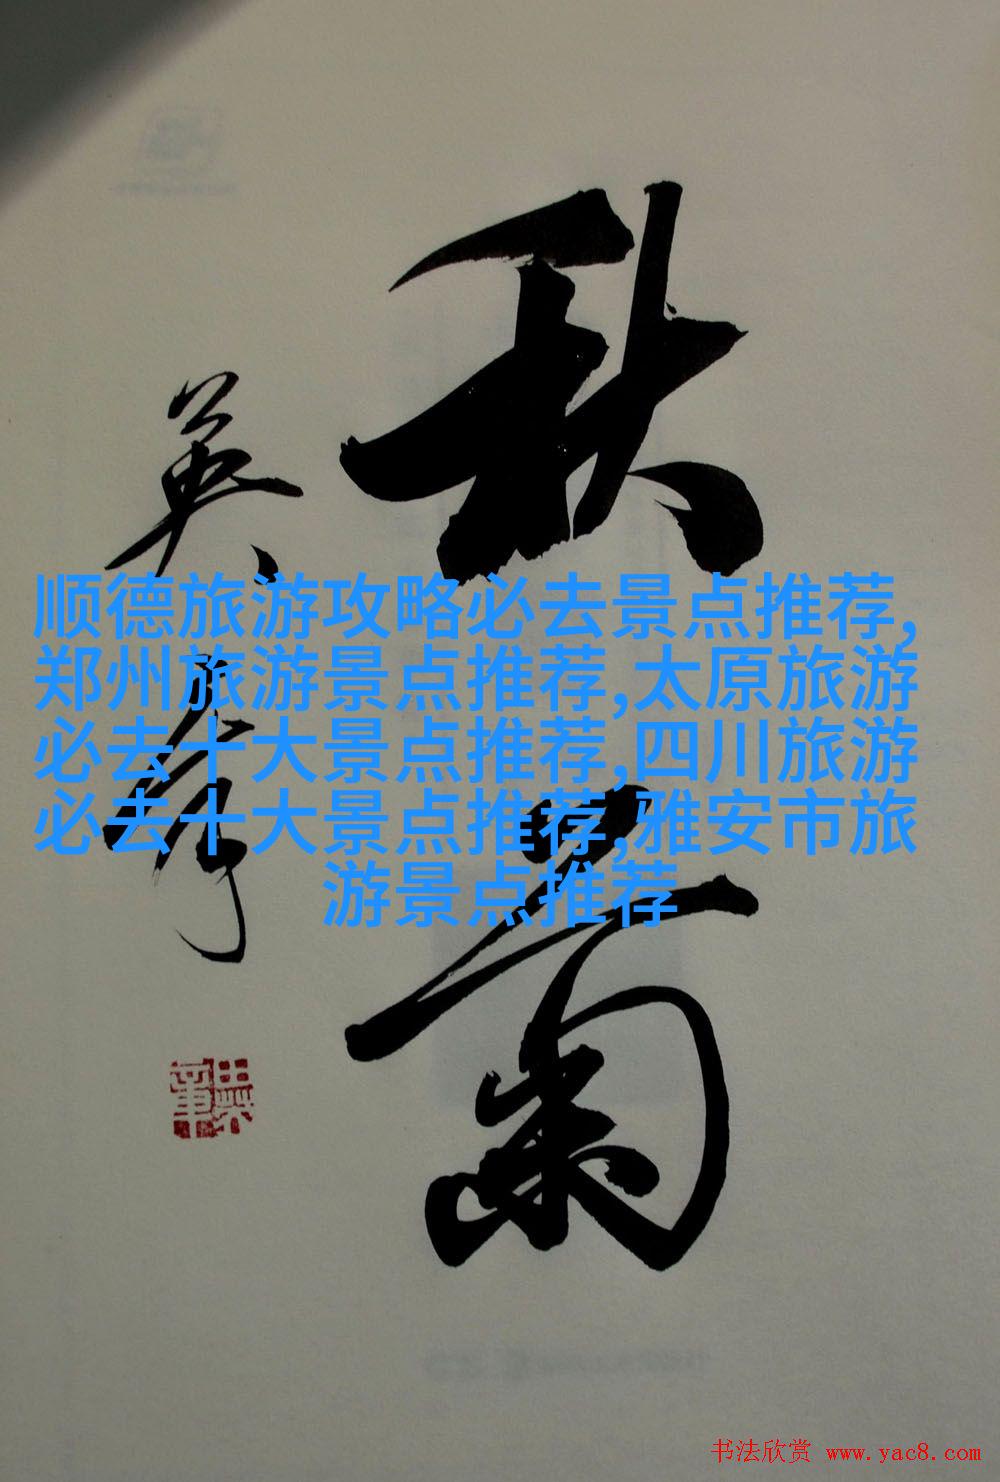 秋
菊
英
顺德旅游攻略必去景点推荐,
郑州旅游景点推荐,太原旅游
必去十大景点推荐,四川旅游
必去十大景点推荐,雅安市旅
游景点推荐
书法欣赏 www.yac8.com